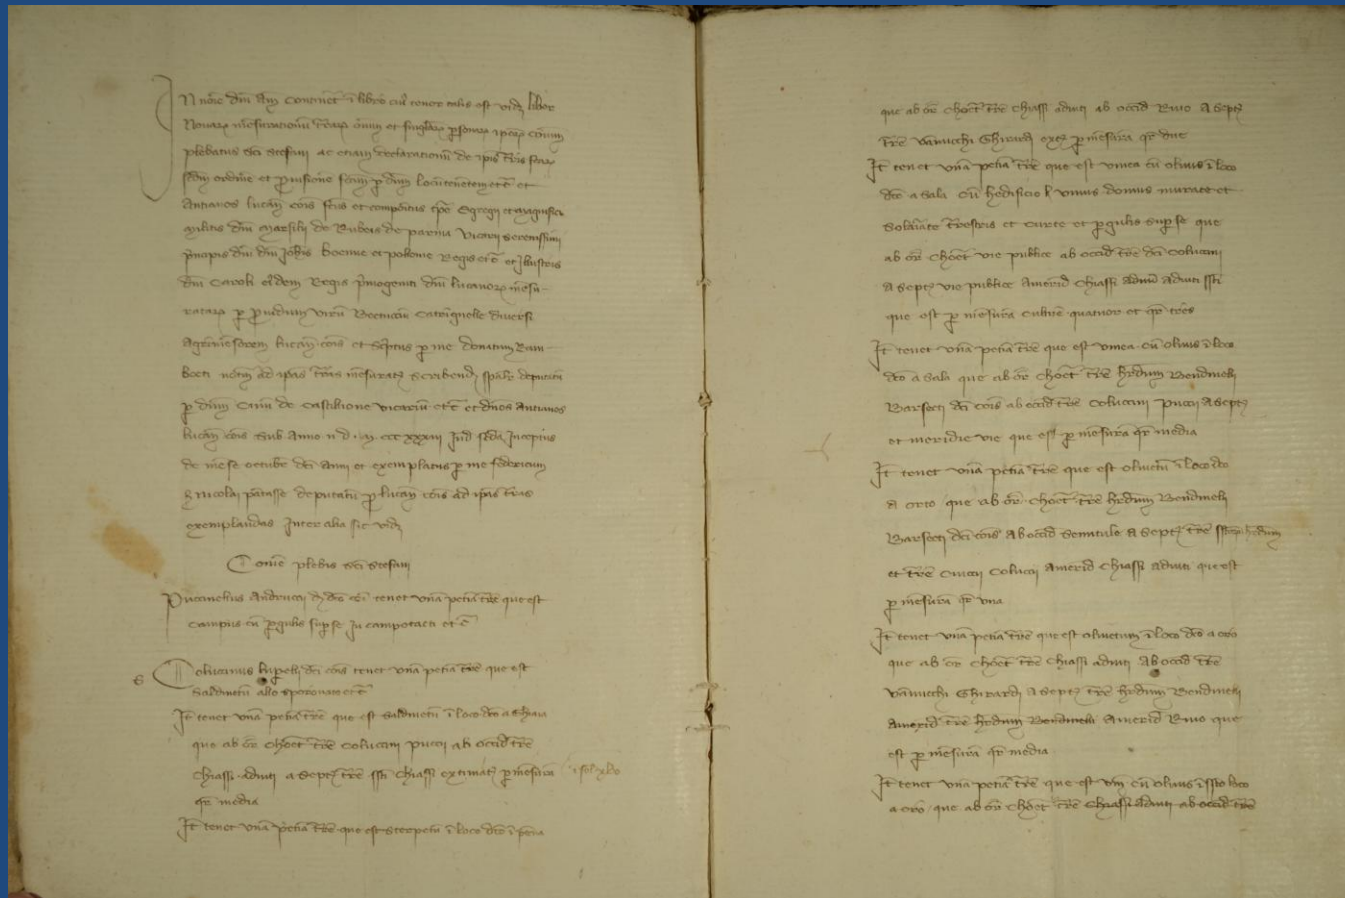 In noie dni am Continet i libro cui tenor talis est vidz liber
Novarz mesurationu trarz oium et singlarz psonarz ipcarz coium
plebatus sci stefani ac etiam declarationu de ipis tris
scdm ordine et provisione scam p dnm locutenetem etc et
Antianos lucan cois scus et compoitus tpe Egregii et magnifici
militis dni marsilii de Rubeis de parma vicarii serenissimi
principis dni dni Johis boemie et polonie Regis etc et Illustris
dni Caroli eidem Regis primogeniti dni lucanorz mesu-
ratarz p providum virum diversi
Agrimesorem lucan cois et scriptus p me donatum Ram-
bocti notm ad ipas tras mesuratas scribend spalr deputatu
p dnm de castilione vicariu etc et dnos Antianos
lucan cois sub Anno n d m ccc xxxiii Ind scda Inceptus
de mese octubr dci anni et exemplatus p me federicum
nicolai deputatu p lucan cois ad ipas tras
exemplandas Inter alia sic vidz
Comue plebis sci stefani
Puccinellus Andruccii dco coi tenet una petia tre que est
Campus cu pgulis sup se In campotacti etc
6 Coluccinus lupelli dci cois tenet una petia tre que est
Saldinetu allo speronaio etc
It tenet una petia tre que est saldinetu i loco dco a Ghiaia
que ab or choet tre coluccini puccii ab occid tre
chiassi aduiti a septz tre ssti chiassi extimatz p mesura i fol xlvo
qr media
It tenet una petia tre que est sterpetu i loco dco i
que ab or choet tre chiassi aduiti ab occid Rivo A septz
tre vannucchi Ghirardi p mesura qr due
It tenet una petia tre que est vinea cu olivis i loco
dco a sala cu hedificio unius domus murate et
solariate trestris et curte et pgulis sup se que
ab or choet vie publice ab occid tre dci coluccini
a septz vie publice Amerid chiassi aduiti ssti
que est p mesura cultre quatuor et qr tres
It tenet una petia tre que est vinea cu olivis i loco
dco a sala que ab or choet tre hrdum Bendinelli
Barsocti dci cois ab occid tre coluccini puccii A septz
et meridie vie que est p mesura qr media
It tenet una petia tre que est olivetu i loco dco
a orto que ab or choet tre hrdum Bendinelli
Barsocti dci cois Ab occid semitule A septz tre hrdum
et tre colucci Amerid chiassi aduiti que est
p mesura qr una
It tenet una petia tre que est olivetum i loco dco a oro
que ab or choet tre chiassi aduiti Ab occid tre
vannucchi Ghirardi A septz tre hrdum Bendinelli
Amerid tre hrdum Bendinelli Amerid Rivo que
est p mesura qr media
It tenet una petia tre que est vin cu olivis i ssto loco
a oro que ab or choet tre chiassi aduiti ab occid tre